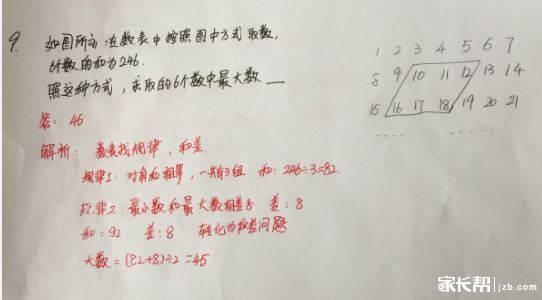 9. 如图所示:在数表中按照图中方式取数,
6个数的和为246.
照这种方式,求取的6个数中最大数 __
答: 45
解析: 数表找规律,和差.
规律1: 对角和相等,一共有3组 和: 246÷3=82.
规律2: 最小数和最大数相差8 差: 8
和: 92 差: 8 转化为和差问题
大数=(82+8)÷2=45
1 2 3 4 5 6 7
8 9 10 11 12 13 14
15 16 17 18 19 20 21
.... .....
家长帮 jzb.com